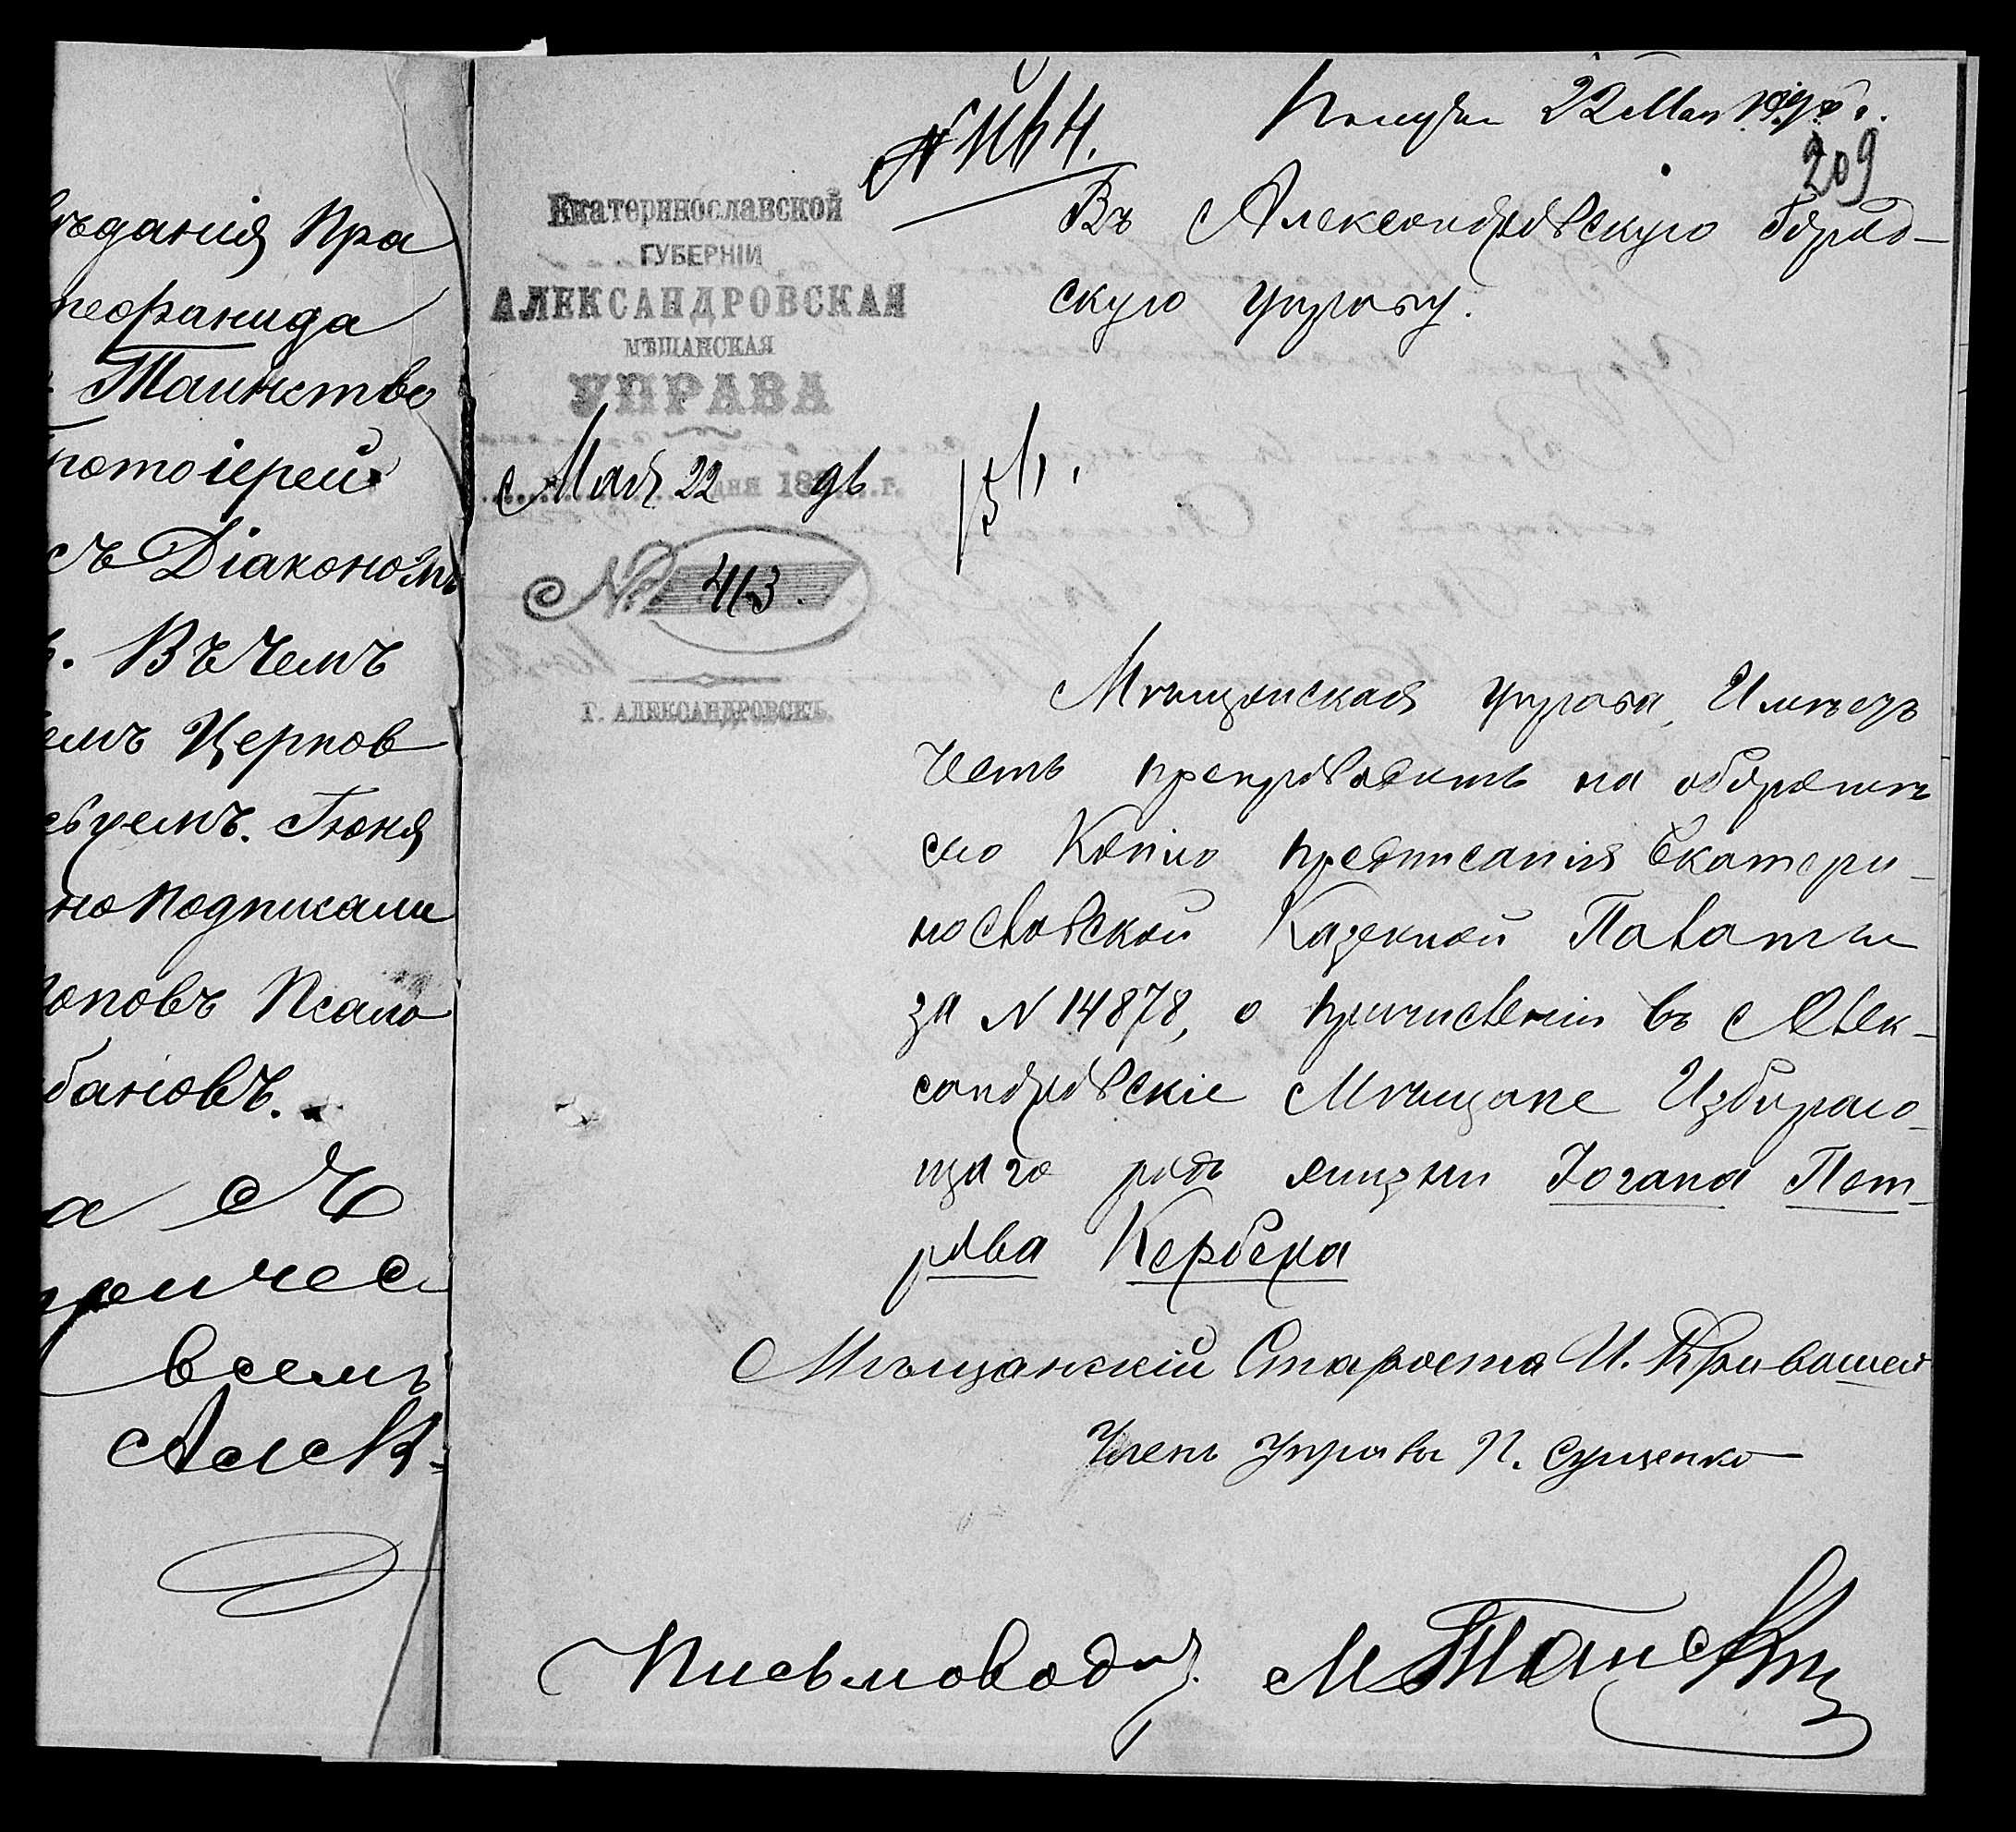 ѣданія Пра
теофанида
Таинство
ротоіерей
съ Діакономъ
Въ чемъ
емъ Церков
ствуемъ. Іюня
но подписали
Поповъ Псало
бановъ.
а
всемъ
Алек-
Получен 22 Мая
209
Екатеринославской
ГУБЕРНІИ
АЛЕКСАНДРОВСКАЯ
МѢЩАНСКАЯ
УПРАВА
Мая 22 дня 1896 г.
№ 413.
Г. АЛЕКСАНДРОВСКЪ.
Въ Александровскую Город-
скую управу.
Мѣщанская управа, Имѣетъ
честь препроводить на оборотѣ
сего Копію предписанія Екатери-
нославской Казенной Палаты
за N 14878, о причисленіи въ Алек-
сандровскіе Мѣщане Избираю-
щаго родъ жизни Іогана Пет-
рова Кербера
Мѣщанскій Староста И. Кривошея
Членъ управы П. Сущенко
Письмоводи. М Танскій